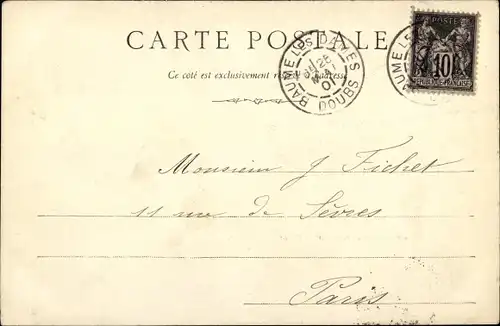 CARTE POSTALE
BAUME LES DAMES
26
01
DOUBS
POSTE
10
REPUBLIQUE FRANÇAISE
BAUME LE
Ce côté est exclusivement adresse
Monsieur J Fichet
11 rue de Sèvres
Paris